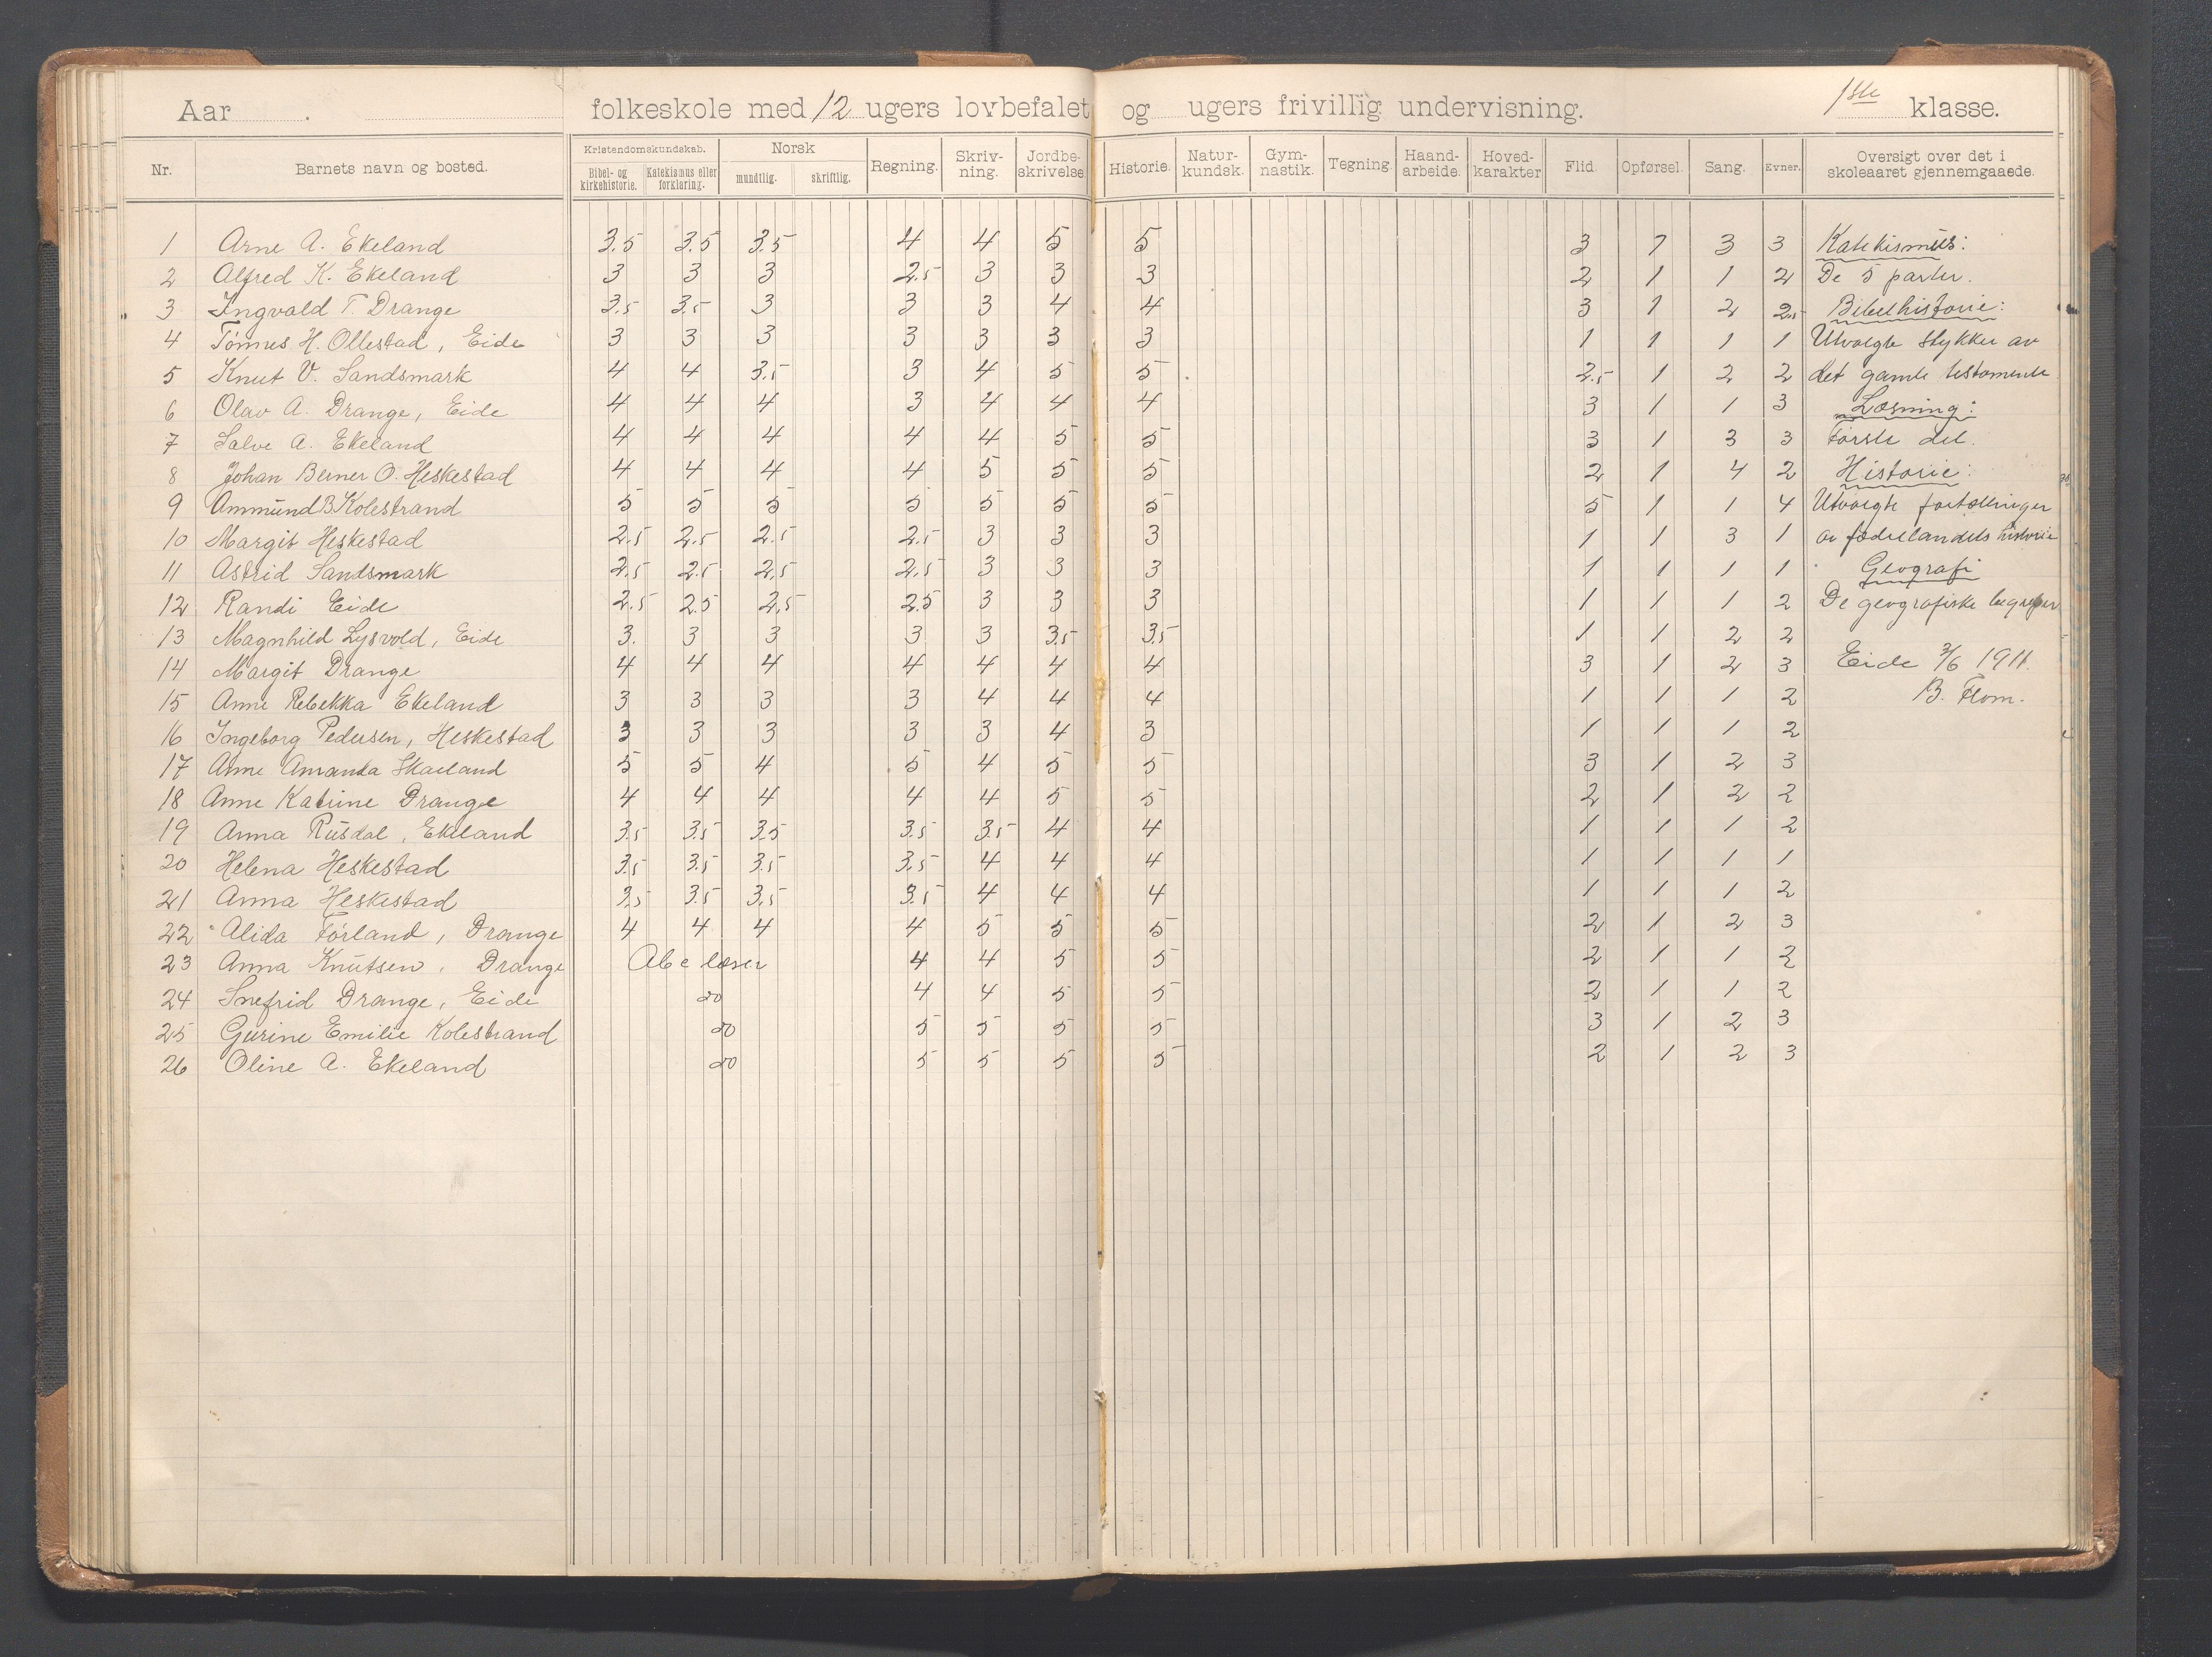 Aar . folkeskole med 12 ugers lovbefalet og ugers frivillig undervisning. 1ste klasse.
Nr. Barnets navn og bosted. Kristendomskundskab. Bibel- og kirkehistorie. Katekismus eller forklaring. Norsk mundtlig. skriftlig. Regning. Skriv-ning. Jordbe-skrivelse. Historie. Natur-kundsk. Gym-nastik. Tegning. Haand-arbeide. Hoved-karakter Flid. Opførsel. Sang. Evner. Oversigt over det i skoleaaret gjennemgaaede.
1 Arne A. Ekeland 3.5 3.5 3.5 4 4 5 5 3 1 3 3 Katekismus:
2 Alfred K. Ekeland 3 3 3 2.5 3 3 3 2 1 1 2 De 5 parter.
3 Ingvald T. Drange 3.5 3.5 3 3 3 4 4 3 1 2 2.5 Bibelhistorie:
4 Tómes H. Ollestad, Eide 3 3 3 3 3 3 3 1 1 1 1 Utvalgte stykker av
5 Knut V. Sandsmark 4 4 3.5 3 4 5 5 2.5 1 2 2 det gamle testamente
6 Olav A. Drange, Eide 4 4 4 3 4 4 4 3 1 1 3 Læsning:
7 Salve A. Ekeland 4 4 4 4 4 5 5 3 1 3 3 Første del.
8 Johan Berner O. Heskestad 4 4 4 4 5 5 5 2 1 4 2 Historie:
9 Ammund B Kolestrand 5 5 5 5 5 5 5 5 1 1 4 Utvalgte fortællinger
10 Margit Heskestad 2.5 2.5 2.5 2.5 3 3 3 1 1 3 1 av fædrelandets historie
11 Astrid Sandsmark 2.5 2.5 2,5 2,5 3 3 3 1 1 1 1 Geografi
12 Randi Eide 2.5 2.5 2,5 2.5 3 3 3 1 1 1 2 De geografiske begreper
13 Magnhild Lysvold, Eide 3. 3 3 3 3 3.5 3.5 1 1 2 2
14 Margit Drange 4 4 4 4 4 4 4 3 1 2 3 Eide 3/6 1911.
15 Anne Rebekka Ekeland 3 3 3 3 4 4 4 1 1 1 2 B. Flom.
16 Ingeborg Pedersen, Heskestad 3 3 3 3 3 4 3 1 1 1 2
17 Anne Amanda Skaeland 5 5 4 5 4 5 5 3 1 2 3
18 Anne Katrine Drange 4 4 4 4 4 5 5 2 1 2 2
19 Anna Rusdal, Ekeland 3.5 3.5 3.5 3.5 3.5 4 4 1 1 1 2
20 Helena Heskestad 3.5 3.5 3.5 3.5 4 4 4 1 1 1 1
21 Anna Heskestad 3.5 3.5 3.5 3.5 4 4 4 1 1 1 2
22 Alida Förland, Drange 4 4 4 4 5 5 5 2 1 2 3
23 Anna Knutsen, Drange Abc læser 4 4 5 5 2 1 1 2
24 Snefrid Drange, Eide do 4 4 5 5 2 1 1 2
25 Gurine Emilie Kolestrand do 5 5 5 5 3 1 2 3
26 Oline A. Ekeland do 5 5 5 5 2 1 2 3